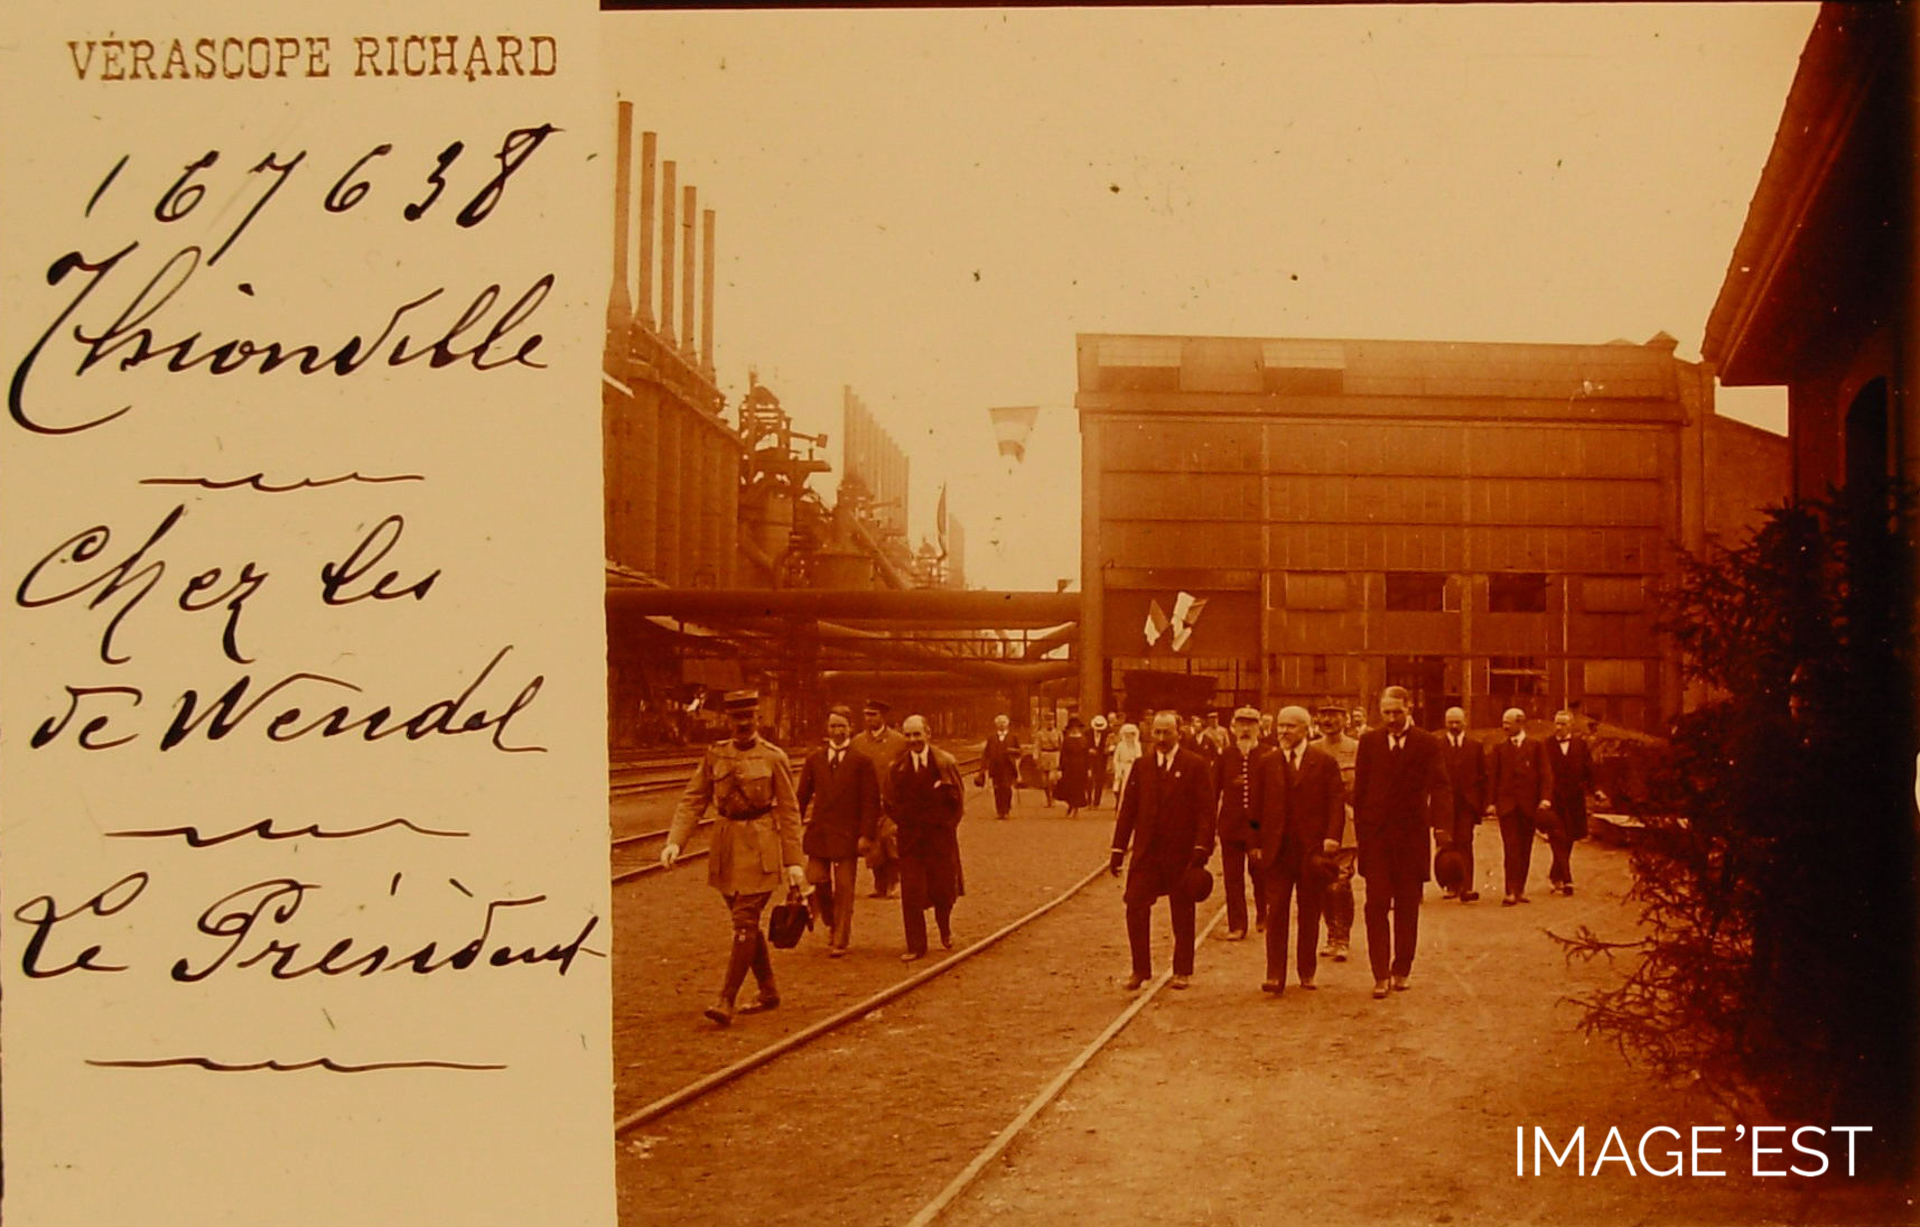 VÉRASCOPE RICHARD
167638
Thionville
Chez les
de Wendel
Le Président
IMAGE'EST